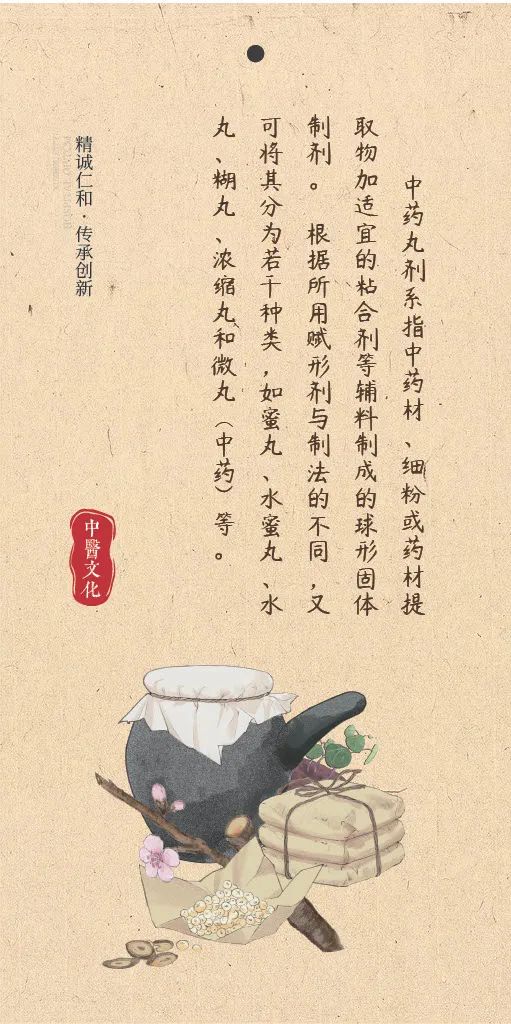 中药丸剂系指中药材、细粉或药材提
取物加适宜的粘合剂等辅料制成的球形固体
制剂。 根据所用赋形剂与制法的不同,又
可将其分为若干种类,如蜜丸、水蜜丸、水
丸、糊丸、浓缩丸和微丸(中药)等。
精诚仁和·传承创新
中醫文化